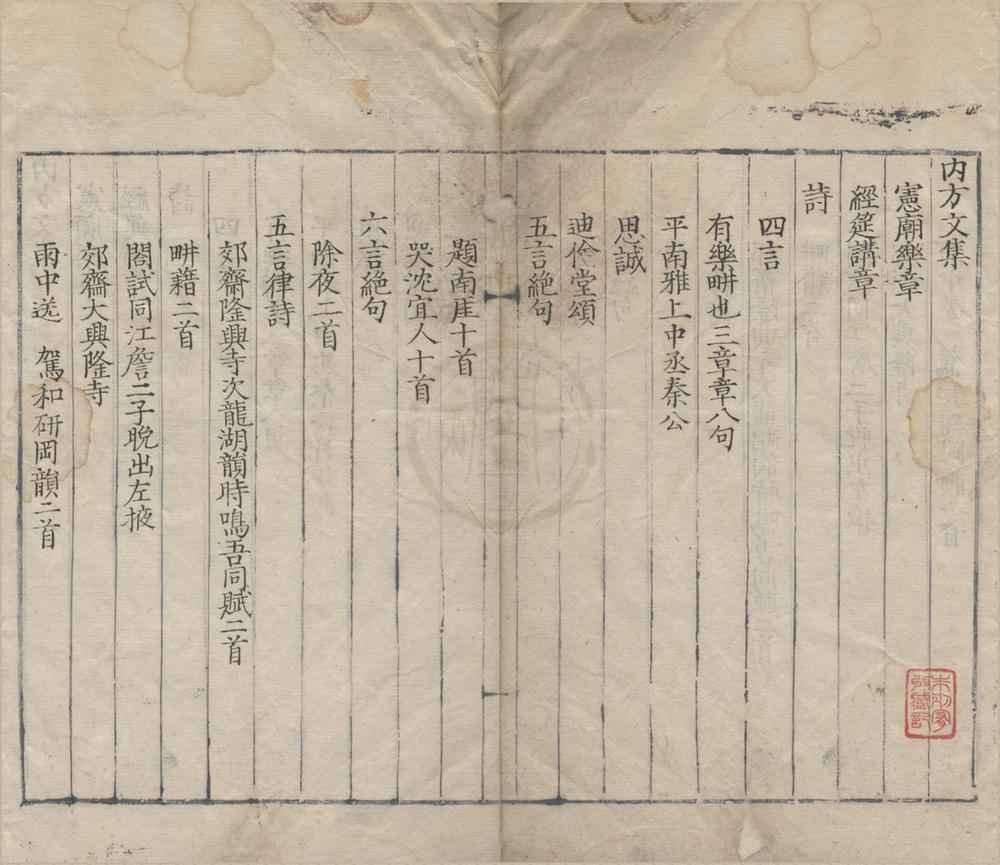 内方文集
憲廟樂章
經筵講章
詩
四言
有樂畊也三章章八句
平南雅上中丞秦公
思誠
迪倫堂頌
五言絕句
題南厓十首
哭沈宜人十首
六言絕句
除夜二首
五言律詩
郊齋隆興寺次龍湖韻時鳴吾同賦二首
畊藉二首
閣試同江詹二子晚出左掖
郊齋大興隆寺
雨中送 駕和研岡韻二首